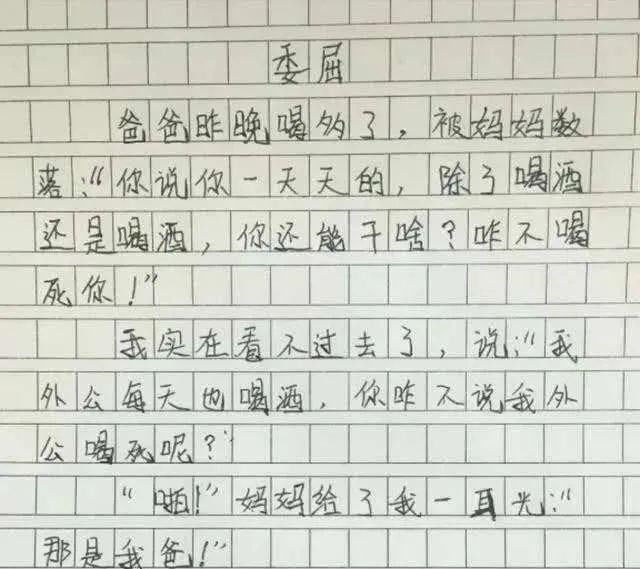 委屈
爸爸昨晚喝多了，被妈妈数
落：“你说你一天天的，除了喝酒
还是喝酒，你还能干啥？咋不喝
死你！”
我实在看不过去了，说：“我
外公每天也喝酒，你咋不说我外
公喝死呢？”
“啪！”妈妈给了我一耳光：“
那是我爸！”